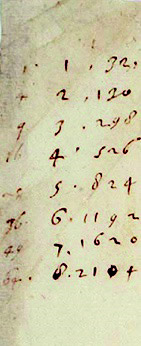 1 1 . 33
4 2 . 130
9 3 . 298
16 4 . 526
25 5 . 824
36. 6. 1192
49 7. 1620
64. 8. 2104